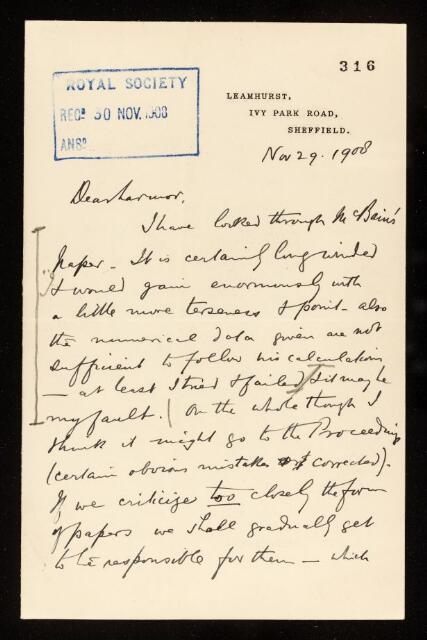 316
ROYAL SOCIETY
RECD 30 NOV. 1908
ANSD
LEAMHURST,
IVY PARK ROAD,
SHEFFIELD.
Nov 29. 1908
Dear Larmor,
I have looked through McBain's
paper - It is certainly longwinded
& would gain enormously with
a little more terseness & point - also
the numerical data given are not
sufficient to follow his calculations
- at least I tried & failed & it may be
my fault. On the whole though I
think it might go to the Proceedings
(certain obvious mistakes corrected) -
If we criticize too closely the form
of papers we shall gradually get
to be responsible for them - which